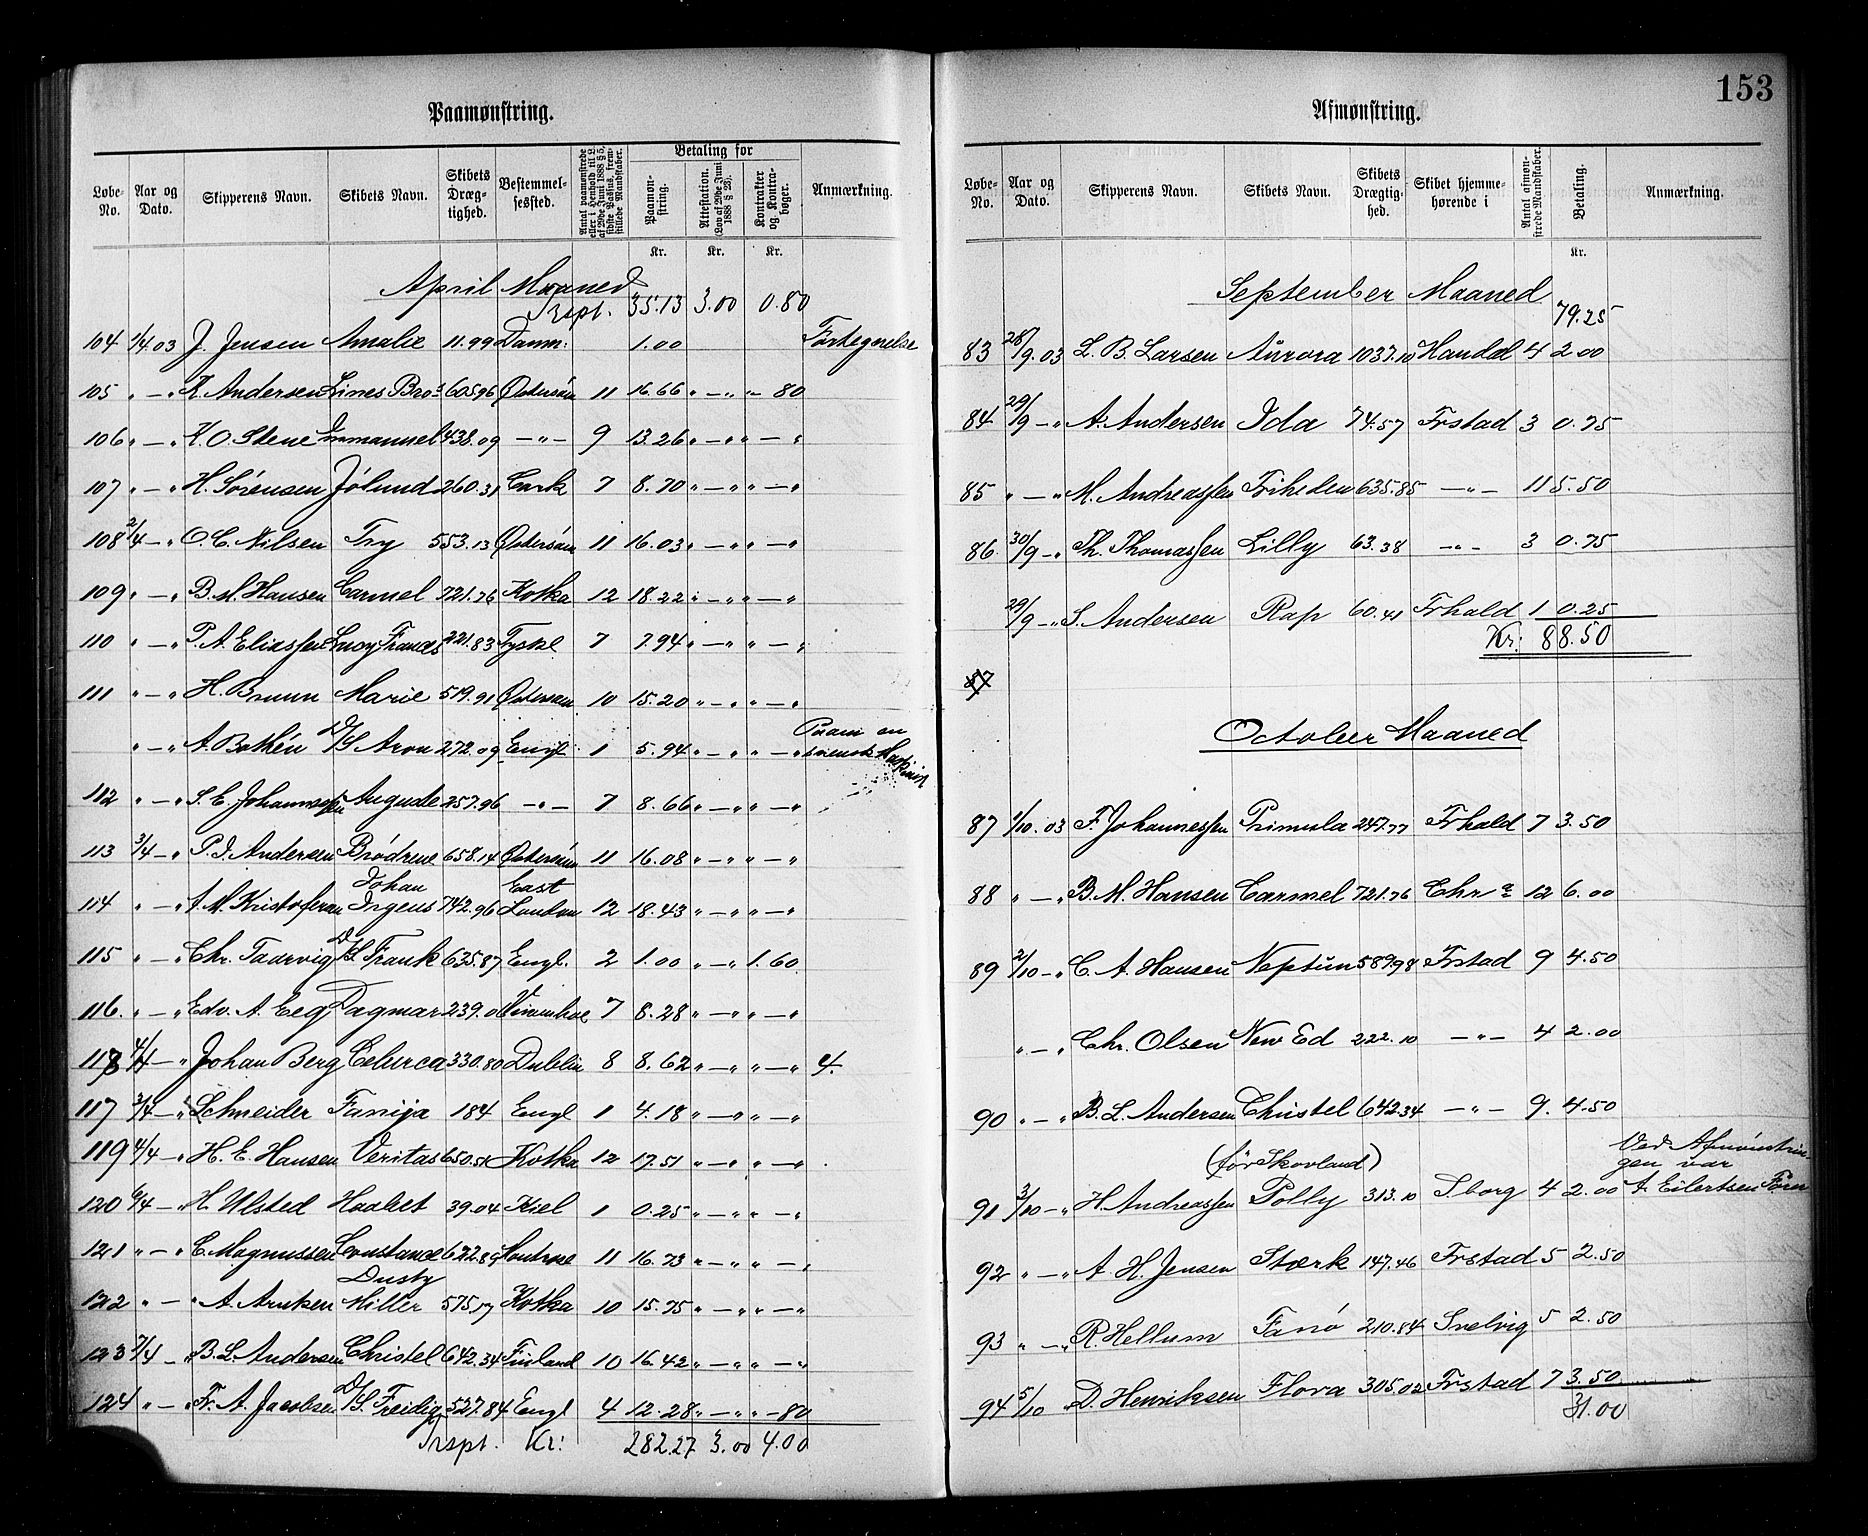 153
Paamønstring.
Løbe-No. Aar og Dato. Skippernes Navn. Skibets Navn. Skibets Dræg-tighed. Bestemmel-sessted. Antal paamønstrede eller i Henhold til L. af 29de Juni 1888 § 5, sidste Passus, frem-stillede Mandskaber. Betaling for Paamøn-string. Attestation. (Lov af 29de Juni 1888 § 26). Kontrakter og Kontra-bøger. Anmærkning.
Kr. Kr. Kr.
April Maaned
Trspt. 35.13 3.00 0.80
104 1/4.03 J. Jensen Amalie 11.99 Danm: 1.00 Fortegnelse
105 " — " K. Andersen Lines Bros 605.96 Østersøn 11 16.66 " — " " — 80
106 " — " K. O. Stene Immanuel 438.09 — " — 9 13.26 " — " " — "
107 " — " H. Sørensen Jølund 260.31 Cork 7 8.70 " — " " — "
108 2/4 — " O. C. Nilsen Try 553.13 Østersøn 11 16.03 " — " " — "
109 " — " B. M. Hansen Carmel 721.76 Kotka 12 18.22 " — " " — "
110 " — " P. A. Eliassen Lucy Frances 221.83 Tyskl 7 7.94 " — " " — "
111 " — " H. Bruun Marie 519.91 Østersøen 10 15.20 " — " " — "
" — " A. Bothén D/S Aron 272.09 Engl 1 5.94 " — " " — " Paam en svensk
112 " — " S. C. Johannessen Auguste 257.96 — " — 7 8.66 " — " " — "
113 3/4 — " P. I. Andersen Brødrene 658.14 Østersøn 11 16.08 " — " " — "
114 " — " A. M. Kristofersen Johan Irgens 742.96 East London 12 18.43 " — " " — "
115 " — " Chr. Taarvig D/S Frank 635.87 Engl. 2 1.00 " — " 1.60
116. " — " Edv. A. Eeg Dagmar 239.0 7 8.28 " — " " — "
118 4/4 — " Johan Berg Celurca 330.80 Dublin 8 8.62 " — " " — " 4.
117 3/4 — " Schneider Fanija 184 Engl 1 4.18 " — " " — "
119 4/4 — " H. E. Hansen Veritas 650.51 Kotka 12 17.51 " — " " — "
120 6/4 — " H. Ulsted Haabet 39.04 Kiel 1 0.25 " — " " — "
121 " — " C. Magnussen Constance 622.89 Montrose 11 16.73 " — " " — "
122 " — " A. Arntzen Dusty Miller 575.17 Kotka 10 15.75 " — " " — "
123 7/4 — " B. L. Andersen Christel 642.34 Finland 10 16.42 " — " " — "
124 " — " Fr. A. Jacobsen D/S Freidig 527.84 Engl 4 12.28 " — " " — 80
Trspt. Kr: 282.27 3.00 4.00
Afmønstring.
Løbe-No. Aar og Dato. Skippernes Navn. Skibets Navn. Skibets Drægtig-hed. Skibet hjemme-hørende i Antal afmøn-strede Mandskaber. Betaling. Anmærkning.
Kr.
September Maaned
79.25
83 28/9.03 L. B. Larsen Aurora 1037.10 Handal 4 2.00
84 29/9 — " A. Andersen Ida 74.57 Frstad 3 0.75
85 " — " M. Andreassen Friheden 635.85 — " — 11 5.50
86 30/9 — " Th. Thomassen Lilly 63.38 — " — 3 0.75
29/9 — " S. Andersen Rap 60.41 Frhald 1 0.25
Kr: 88.50
87
October Maaned
87 1/10.03 F. Johannessen Primula 247.77 Frhald 7 3.50
88 " — " B. M. Hansen Carmel 721.76 Chr a 12 6.00
89 2/10 — " C. A. Hansen Neptun 589.98 Frstad 9 4.50
" — " Chr. Olsen New Ed 222.10 — " — 4 2.00
90 " — " B. L. Andersen Christel 642.34 — " — 9. 4.50
(før Skovland) Ved Afmønstrin-
gen var
91 3/10 — " H. Andreassen Polly 313.10 T.borg 4 2.00 A. Eilertsen Fører
92 " — " A. H. Jensen Stærk 147.46 Frstad 5 2.50
93 " — " R. Hellum Fanø 210.84 Snelvig 5 2.50
94 5/10 D. Henriksen Flora 305.02 Frstad 7 3.50
31.00